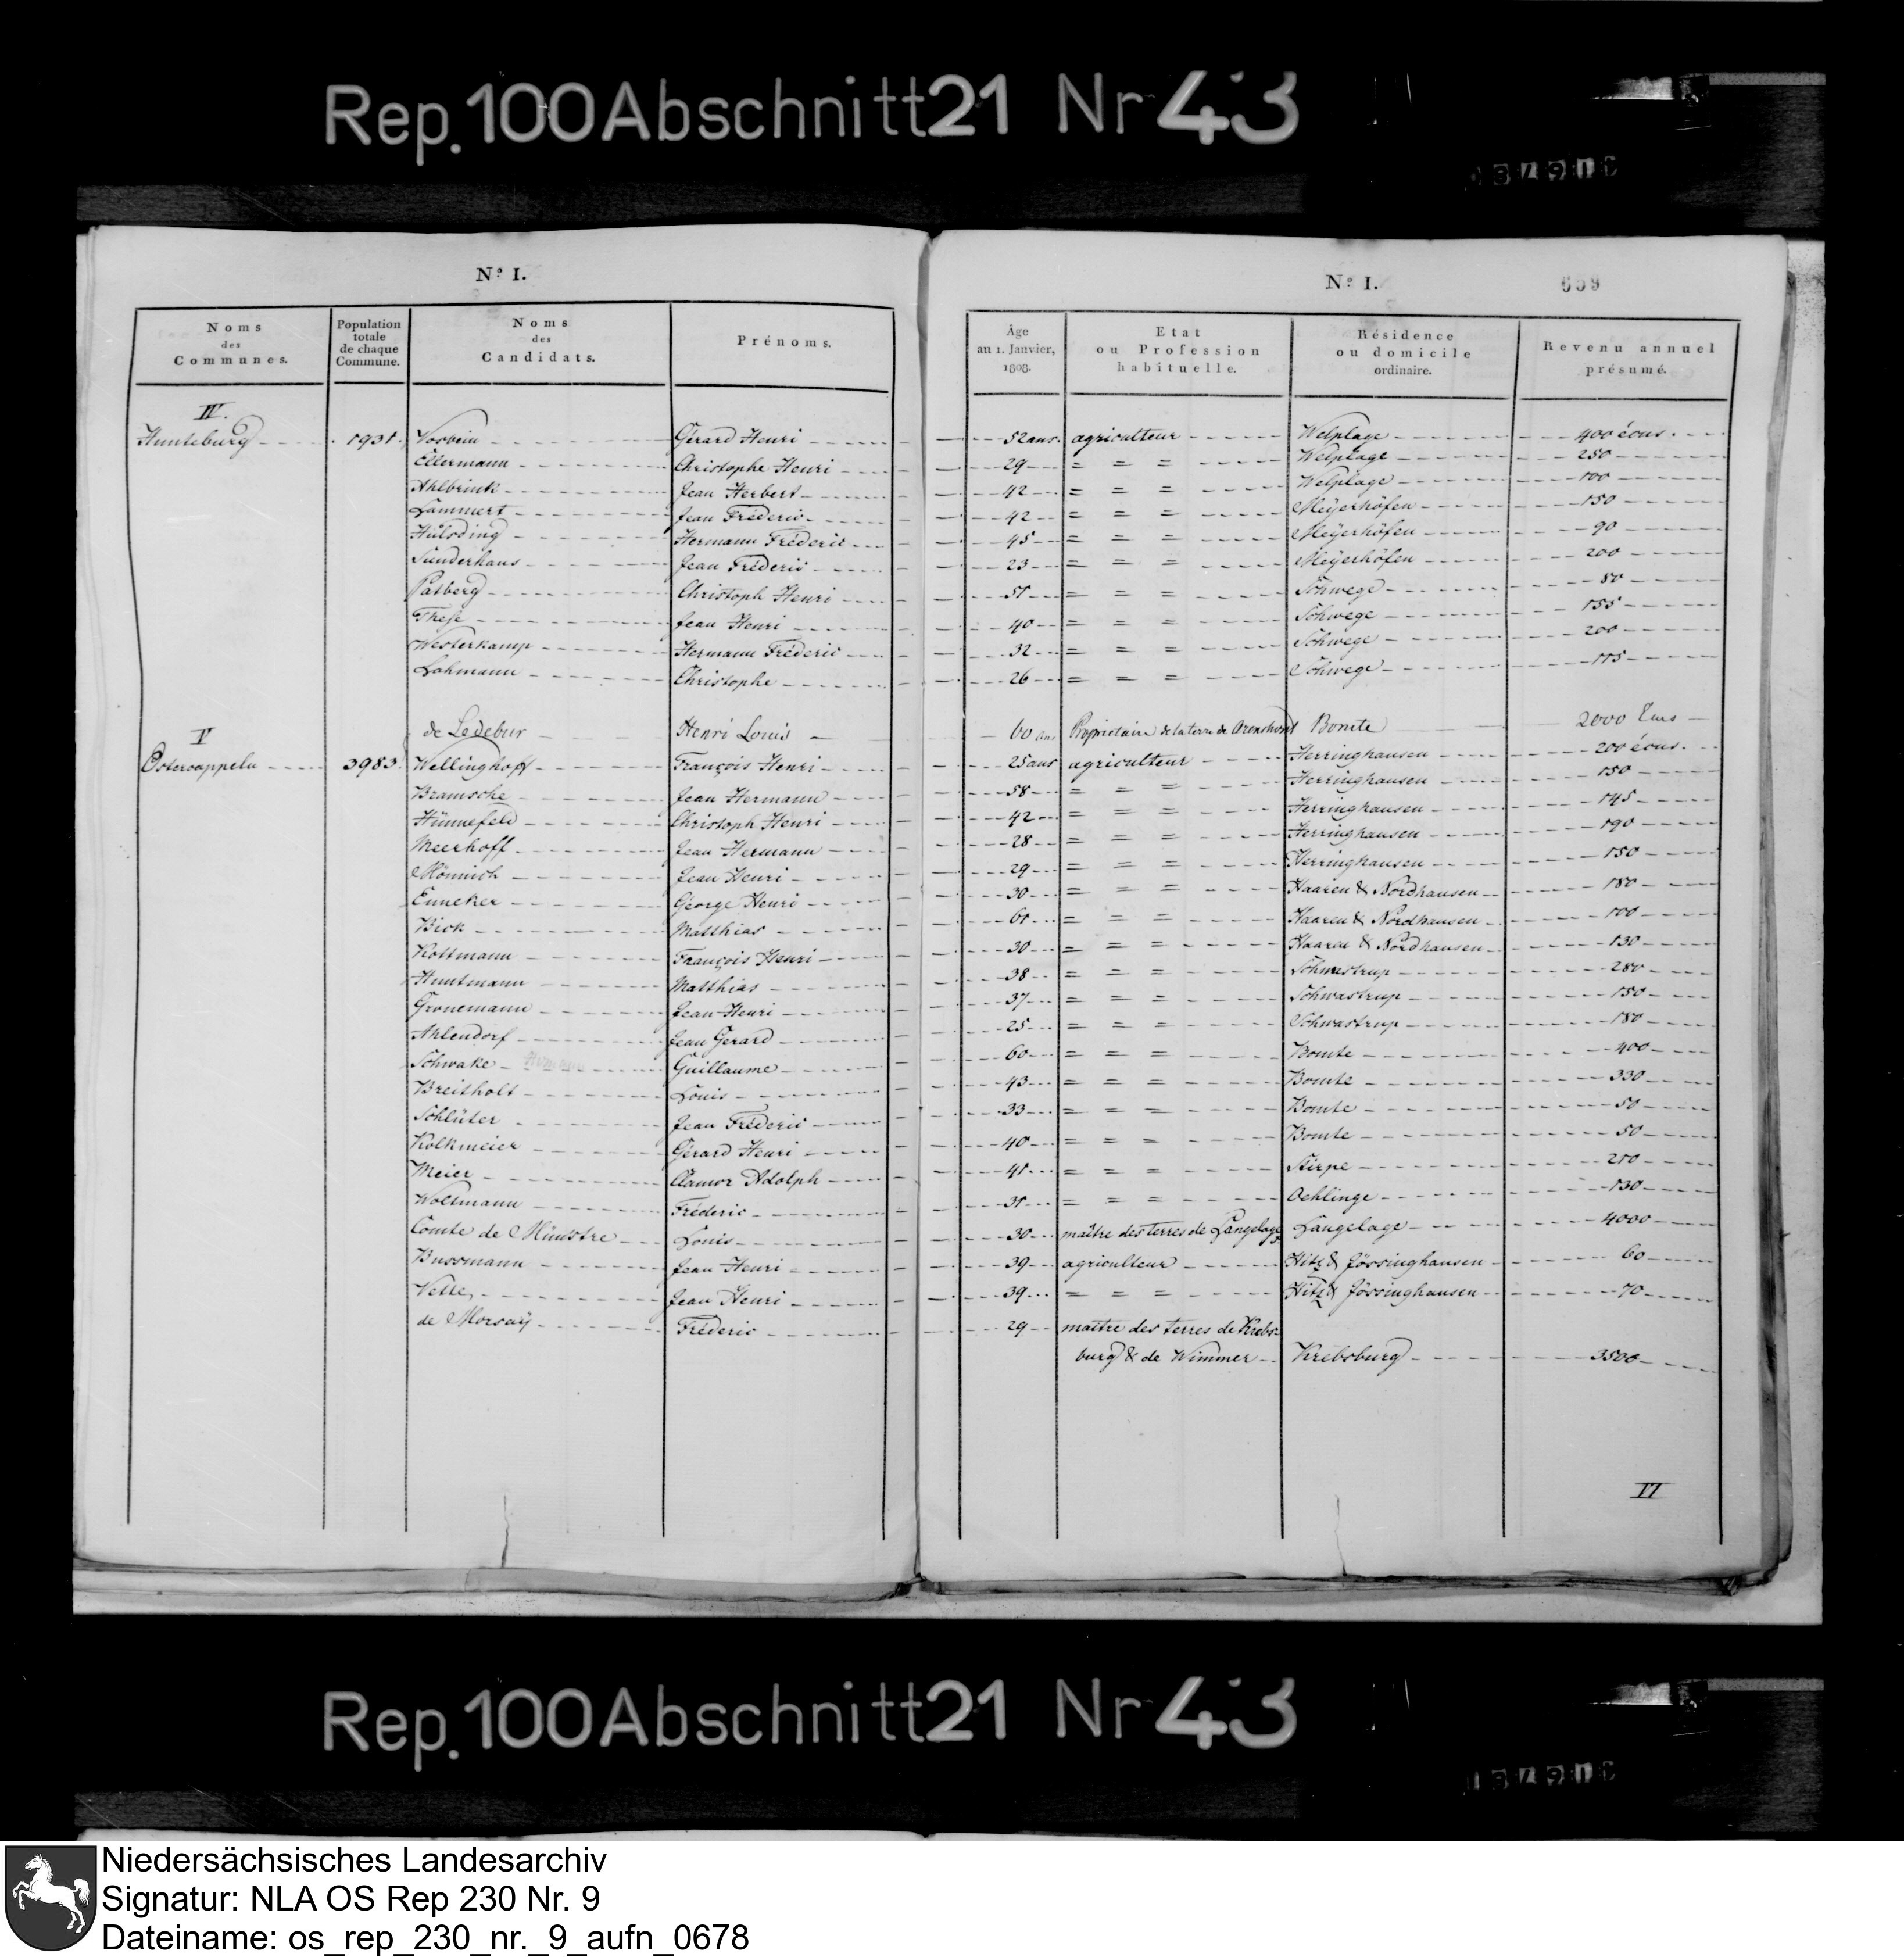 Rep. 100 Abschnitt 21 Nr 43
Nº I.
Nº I. 659
Noms des Communes. | Population totale de chaque Commune. | Noms des Candidats. | Prénoms. | Âge au 1. Janvier, 1808. | Etat ou Profession habituelle. | Résidence ou domicile ordinaire. | Revenu annuel présumé.
IV.
Hunteburg | 1931. | Vorbein | Gérard Henri | 52 ans. | agriculteur | Welplage | 400 écus.
Ellermann | Christophe Henri | 29 | = = = | Welplage | 250
Ahlbrink | Jean Herbert | 42 | = = = | Welplage | 100
Lammert | Jean Fréderic | 42 | = = = | Meÿerhöfen | 150
Hülsding | Hermann Fréderic | 45 | = = = | Meÿerhöfen | 90
Sunderhaus | Jean Fréderic | 23 | = = = | Meÿerhöfen | 200
Patberg | Christoph Henri | 51 | = = = | Schwege | 80
These | Jean Henri | 40 | = = = | Schwege | 155
Westerkamp | Hermann Fréderic | 32 | = = = | Schwege | 200
Lahmann | Christophe | 26 | = = = | Schwege | 115
de Ledebur | Henri Louis | 60 ans | Propriétaire de la terre de Arenshorst | Bomte | 2000 Ecus
V
Ostercappeln | 3983. | Wellinghoff | François Henri | 25 ans | agriculteur | Herringhausen | 200 écus.
Bramsche | Jean Hermann | 58 | = = = | Herringhausen | 150
Hünnefeld | Christoph Henri | 42 | = = = | Herringhausen | 145
Meerhoff | Jean Hermann | 28 | = = = | Herringhausen | 190
Mönnich | Jean Henri | 29 | = = = | Herringhausen | 150
Enneker | George Henri | 30 | = = = | Haaren & Nordhausen | 180
Bick | Matthias | 61 | = = = | Haaren & Nordhausen | 100
Kottmann | François Henri | 30 | = = = | Haaren & Nordhausen | 130
Huntmann | Matthias | 38 | = = = | Schwastrup | 280
Gronemann | Jean Henri | 37 | = = = | Schwastrup | 150
Ahlendorf | Jean Gerard | 25 | = = = | Schwastrup | 180
Schwake | Guillaume | 60 | = = = | Bomte | 400
Breitholt | Louis | 43 | = = = | Bomte | 330
Schlüter | Jean Fréderic | 33 | = = = | Bomte | 50
Kolkmeier | Gérard Henri | 40 | = = = | Bomte | 50
Meier | Clamor Adolph | 41 | = = = | Stirpe | 210
Woltmann | Fréderic | 31 | = = = | Oehlinge | 130
Comte de Münstre | Louis | 30 | maître des terres de Langelage | Langelage | 4000
Bussmann | Jean Henri | 39 | agriculteur | Hitz & Jössinghausen | 60
Velte | Jean Henri | 39 | = = = | Hitz & Jössinghausen | 70
de Morseÿ | Fréderic | 29 | maître des terres de Krebs-
burg & de Wimmer | Krebsburg | 3500
II
Rep. 100 Abschnitt 21 Nr 43
Niedersächsisches Landesarchiv
Signatur: NLA OS Rep 230 Nr. 9
Dateiname: os_rep_230_nr._9_aufn_0678